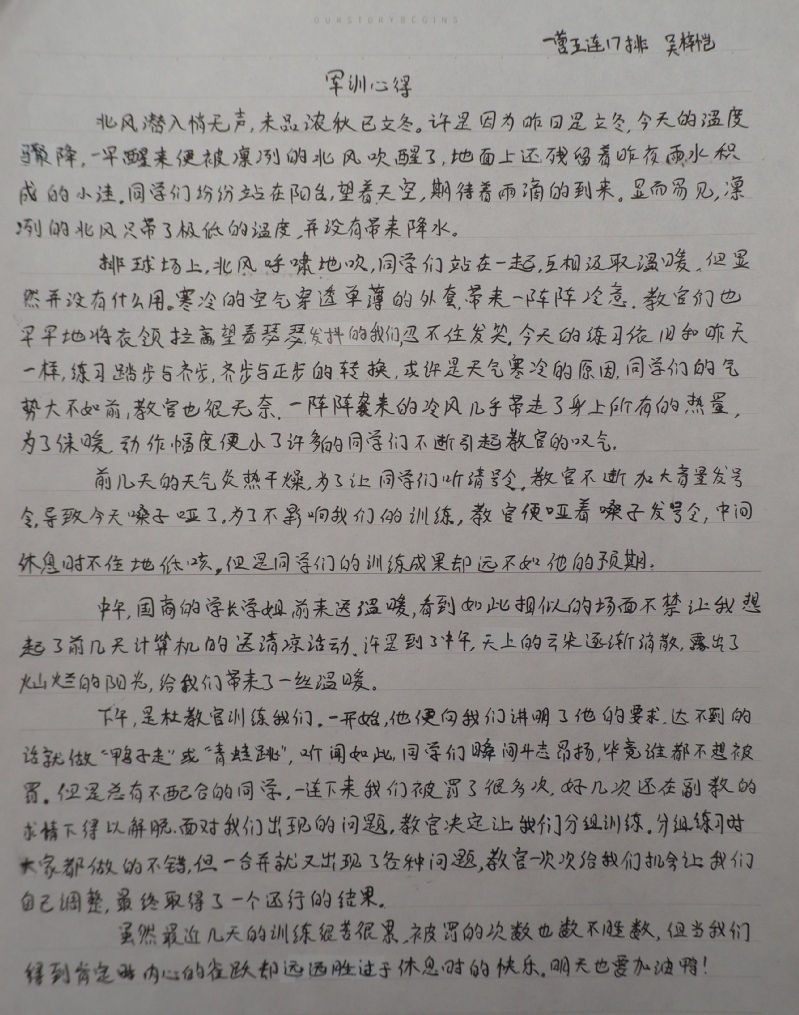 OURSTORYBEGINS
一营五连17排 吴梓恺
军训心得
北风潜入悄无声，未品浓秋已立冬。许是因为昨日是立冬，今天的温度
骤降，一早醒来便被凛冽的北风吹醒了，地面上还残留着昨夜雨水积
成的小洼。同学们纷纷站在阳台，望着天空，期待着雨滴的到来。显而易见，凛
冽的北风只带了极低的温度，并没有带来降水。
排球场上，北风呼啸地吹，同学们站在一起，互相汲取温暖，但显
然并没有什么用。寒冷的空气穿透单薄的外套，带来一阵阵冷意。教官们也
早早地将衣领拉高望着瑟瑟发抖的我们忍不住发笑。今天的练习依旧和昨天
一样，练习踏步与齐步，齐步与正步的转换，或许是天气寒冷的原因，同学们的气
势大不如前，教官也很无奈。一阵阵袭来的冷风几乎带走了身上所有的热量，
为了保暖，动作幅度便小了许多的同学们不断引起教官的叹气。
前几天的天气炎热干燥，为了让同学们听清号令，教官不断加大音量发号
令，导致今天嗓子哑了，为了不影响我们的训练，教官便哑着嗓子发号令，中间
休息时不住地低咳。但是同学们的训练成果却远不如他的预期。
中午，国商的学长学姐前来送温暖，看到如此相似的场面不禁让我想
起了前几天计算机的送清凉活动。许是到了中午，天上的云朵逐渐消散，露出了
灿烂的阳光，给我们带来了一丝温暖。
下午，是杜教官训练我们。一开始，他便向我们讲明了他的要求，达不到的
话就做“鸭子走”或“青蛙跳”，听闻如此，同学们瞬间斗志昂扬，毕竟谁都不想被
罚。但是总有不配合的同学，一连下来我们被罚了很多次，好几次还在副教的
求情下得以解脱。面对我们出现的问题，教官决定让我们分组训练。分组练习时
大家都做的不错，但一合并就又出现了各种问题，教官一次次给我们机会让我们
自己调整，最终取得了一个还行的结果。
虽然最近几天的训练很苦很累，被罚的次数也数不胜数，但当我们
得到肯定时内心的雀跃却远远胜过于休息时的快乐。明天也要加油鸭！